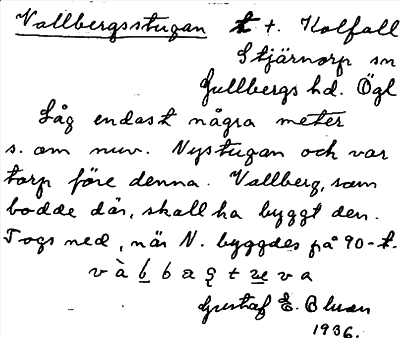 Vallbergsstugan t t. Kolfall
Stjärnorp sn
Gullbergs hd. Ögl
Låg endast några meter
s. om nuv. Nystugan och var
torp före denna. Vallberg, som
bodde där, skall ha byggt den.
Togs ned, när N. byggdes på 90-t.
Gustaf E. Bluan
1936.